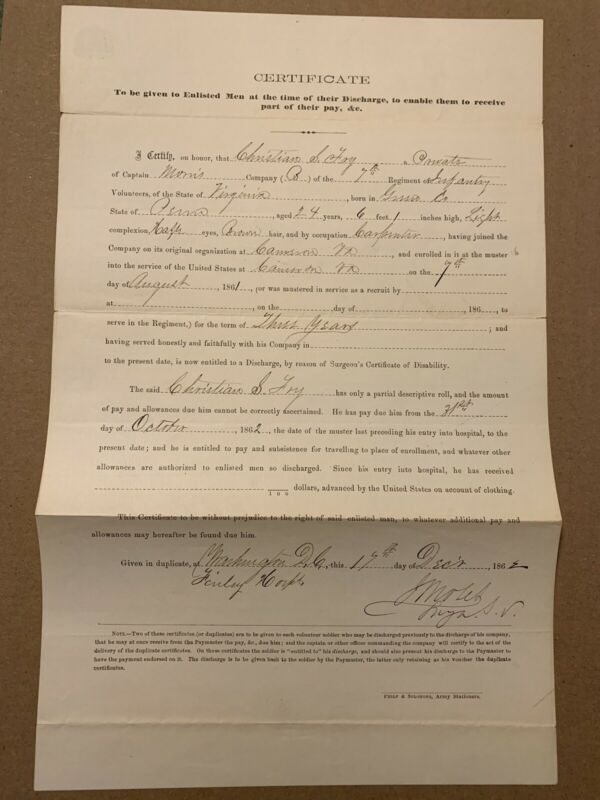 CERTIFICATE
To be given to Enlisted Men at the time of their Discharge, to enable them to receive
part of their pay, &c.
I Certify, on honor, that Christian S. Fry a Private
of Captain Morris Company (B) of the 7th Regiment of Infantry
Volunteers, of the State of Virginia, born in Co
State of Penna, aged 24 years, 6 feet 1 inches high, Light
complexion, eyes, Brown hair, and by occupation Carpenter, having joined the
Company on its original organization at Cameron Va, and enrolled in it at the muster
into the service of the United States at Cameron Va on the 7th
day of August, 1861, (or was mustered in service as a recruit by
at, on the day of, 186, to
serve in the Regiment,) for the term of Three Years; and
having served honestly and faithfully with his Company in
to the present date, is now entitled to a Discharge, by reason of Surgeon's Certificate of Disability.
The said Christian S. Fry has only a partial descriptive roll, and the amount
of pay and allowances due him cannot be correctly ascertained. He has pay due him from the 31st
day of October, 1862, the date of the muster last preceding his entry into hospital, to the
present date; and he is entitled to pay and subsistence for travelling to place of enrollment, and whatever other
allowances are authorized to enlisted men so discharged. Since his entry into hospital, he has received
100 dollars, advanced by the United States on account of clothing.
This Certificate to be without prejudice to the right of said enlisted man, to whatever additional pay and
allowances may hereafter be found due him.
Given in duplicate, at Washington D.C., this 17th day of Decr 1862
Finley Hosptl
Surgn U.S.V.
NOTE.—Two of these certificates (or duplicates) are to be given to each volunteer soldier who may be discharged previously to the discharge of his company,
that he may at once receive from the Paymaster the pay, &c., due him; and the captain or other officer commanding the company will certify to the act of the
delivery of the duplicate certificates. On these certificates the soldier is "entitled to" his discharge, and should also present his discharge to the Paymaster to
have the payment endorsed on it. The discharge is to be given back to the soldier by the Paymaster, the latter only retaining as his voucher the duplicate
certificates.
PHILP & SOLOMONS, Army Stationers.